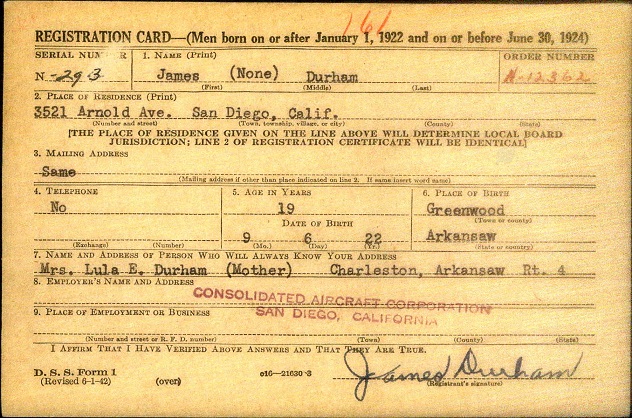 161
REGISTRATION CARD—(Men born on or after January 1, 1922 and on or before June 30, 1924)
SERIAL NUMBER 1. NAME (Print) ORDER NUMBER
N-293 James (None) Durham N-12362
(First) (Middle) (Last)
2. PLACE OF RESIDENCE (Print)
3521 Arnold Ave. San Diego, Calif.
(Number and street) (Town, township, village, or city) (County) (State)
[THE PLACE OF RESIDENCE GIVEN ON THE LINE ABOVE WILL DETERMINE LOCAL BOARD
JURISDICTION; LINE 2 OF REGISTRATION CERTIFICATE WILL BE IDENTICAL]
3. MAILING ADDRESS
Same
(Mailing address if other than place indicated on line 2. If same insert word same)
4. TELEPHONE 5. AGE IN YEARS 6. PLACE OF BIRTH
No 19 Greenwood
DATE OF BIRTH (Town or county)
9 6 22 Arkansaw
(Exchange) (Number) (Mo.) (Day) (Yr.) (State or country)
7. NAME AND ADDRESS OF PERSON WHO WILL ALWAYS KNOW YOUR ADDRESS
Mrs. Lula E. Durham (Mother) Charleston, Arkansaw Rt. 4
8. EMPLOYER'S NAME AND ADDRESS
CONSOLIDATED AIRCRAFT CORPORATION
9. PLACE OF EMPLOYMENT OR BUSINESS
SAN DIEGO, CALIFORNIA
(Number and street or R. F. D. number) (Town) (County) (State)
I AFFIRM THAT I HAVE VERIFIED ABOVE ANSWERS AND THAT THEY ARE TRUE.
D. S. S. Form 1
(Revised 6-1-42) (over) 16—21630-3
James Durham
(Registrant's signature)